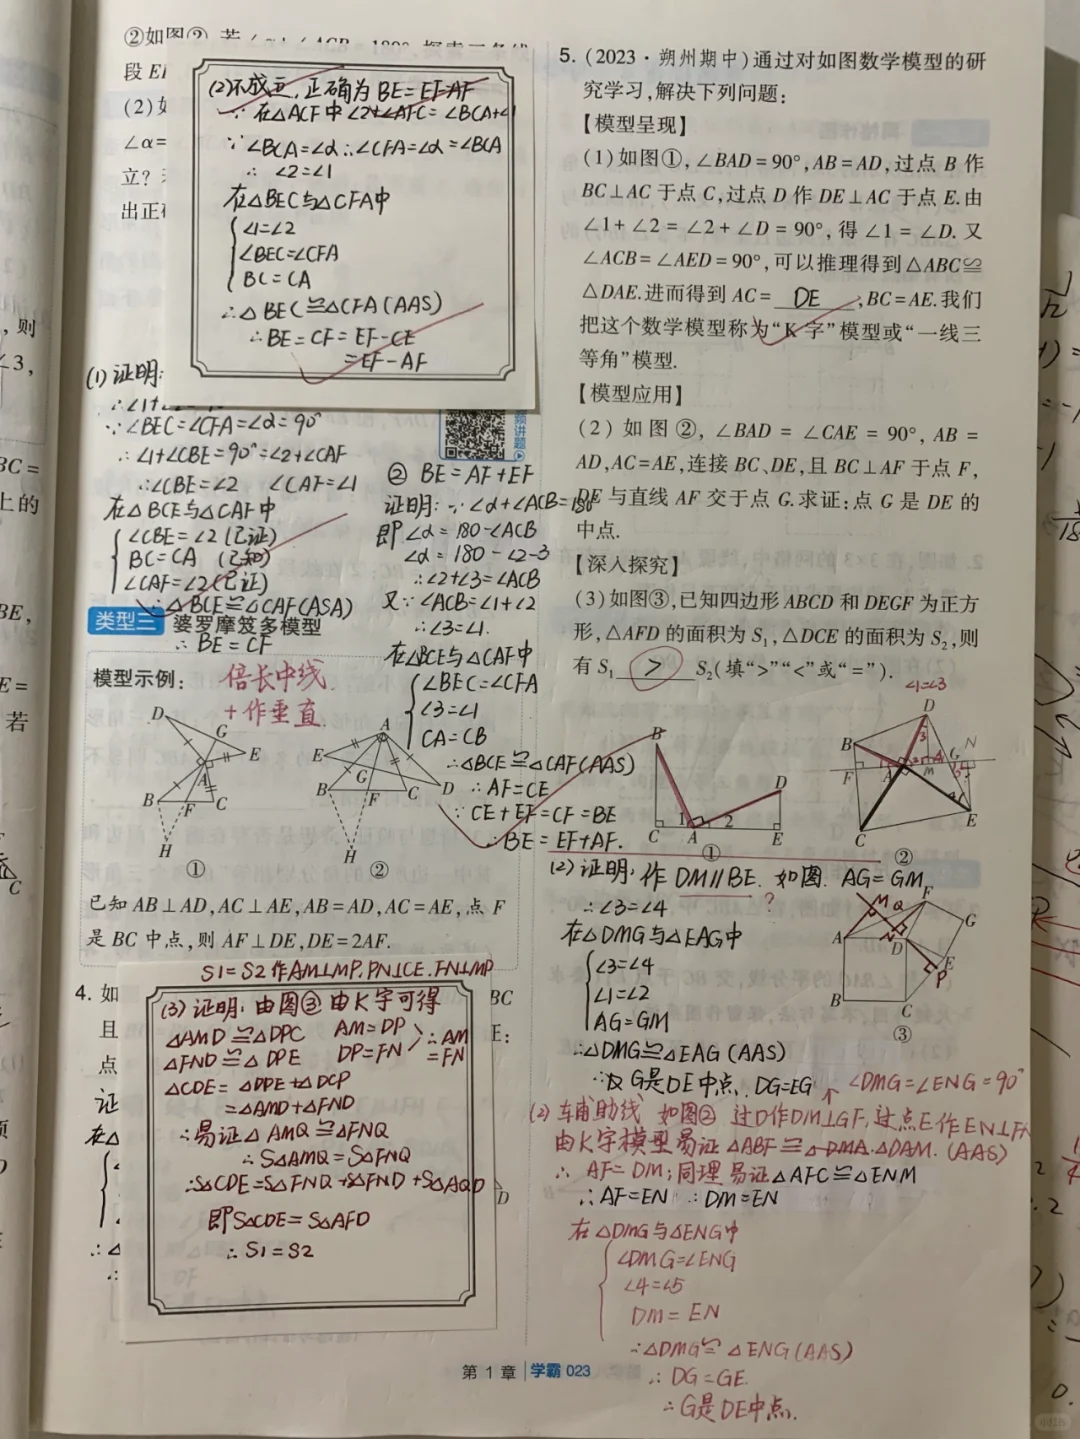 ②如图②,若∠α+∠ACB=180°,探索三条线
段 EF
(2)如
∠α=
立?
出正确
(2)不成立,正确为BE=EF-AF
∵在△ACF中∠2+∠AFC=∠BCA+∠1
∵∠BCA=∠α∴∠CFA=∠α=∠BCA
∴∠2=∠1
在△BEC与△CFA中
∠1=∠2
∠BEC=∠CFA
BC=CA
∴△BEC≌△CFA(AAS)
∴BE=CF=EF-CE
=EF-AF
(1)证明:
∵∠BEC=∠CFA=∠α=90°
∴∠1+∠CBE=90°=∠2+∠CAF
∴∠CBE=∠2 ∠CAF=∠1
在△BCE与△CAF中
∠CBE=∠2(已证)
BC=CA (已知)
∠CAF=∠2(已证)
∴△BCE≌△CAF(ASA)
∴BE=CF
频讲题
② BE=AF+EF
证明:∵∠α+∠ACB=180°
即∠α=180-∠ACB
∠α=180-∠2-3
∴∠2+∠3=∠ACB
又∵∠ACB=∠1+∠2
∴∠3=∠1.
在△BCE与△CAF中
∠BEC=∠CFA
∠3=∠1
CA=CB
∴△BCE≌△CAF(AAS)
∴AF=CE
∵CE+EF=CF=BE
∴BE=EF+AF.
类型三 婆罗摩笈多模型
模型示例: 倍长中线
+作垂直
D G E A B F C H
①
A E G B F C D H
②
已知 AB⊥AD,AC⊥AE,AB=AD,AC=AE,点 F
是 BC 中点,则 AF⊥DE,DE=2AF.
S1=S2作AM⊥MP.PN⊥CE.FN⊥MP
4. 如
BC
且
E:
点
证
在△
D
(3)证明:由图③由K字可得
△AMD≌△DPC AM=DP ∴AM
△FND≌△DPE DP=FN =FN
△CDE=△DPE+△DCP
=△AMD+△FND
∴易证△AMQ≌△FNQ
∴S△AMQ=S△FNQ
∴S△CDE=S△FNQ+S△FND+S△AQD
即S△CDE=S△AFD
∴S1=S2
5. (2023·朔州期中)通过对如图数学模型的研
究学习,解决下列问题:
【模型呈现】
(1)如图①,∠BAD=90°,AB=AD,过点 B 作
BC⊥AC 于点 C,过点 D 作 DE⊥AC 于点 E.由
∠1+∠2=∠2+∠D=90°,得∠1=∠D.又
∠ACB=∠AED=90°,可以推理得到△ABC≌
△DAE.进而得到 AC= DE ,BC=AE.我们
把这个数学模型称为“K 字”模型或“一线三
等角”模型.
【模型应用】
(2)如图②,∠BAD=∠CAE=90°,AB=
AD,AC=AE,连接 BC、DE,且 BC⊥AF 于点 F,
DE 与直线 AF 交于点 G.求证:点 G 是 DE 的
中点.
【深入探究】
(3)如图③,已知四边形 ABCD 和 DEGF 为正方
形,△AFD 的面积为 S₁,△DCE 的面积为 S₂,则
有 S₁ > S₂(填“>”“<”或“=”).
∠1=∠3
B D C 1 A 2 E
①
D B F A M G N C E
②
(2)证明:作DM∥BE.如图.AG=GM
?
∴∠3=∠4
在△DMG与△EAG中
∠3=∠4
∠1=∠2
AG=GM
∴△DMG≌△EAG(AAS)
∴G是DE中点.DG=EG
∠DMG=∠ENG=90°
M Q F A N D G E P B C
③
(2)辅助线 如图② 过D作DM⊥GF,过点E作EN⊥FN
由K字模型易证△ABF≌△DAM.(AAS)
∴AF=DM;同理易证△AFC≌△ENM
∴AF=EN ∴DM=EN
在△DMG与△ENG中
∠DMG=∠ENG
∠4=∠5
DM=EN
∴△DMG≌△ENG(AAS)
∴DG=GE.
∴G是DE中点.
第 1 章 学霸 023